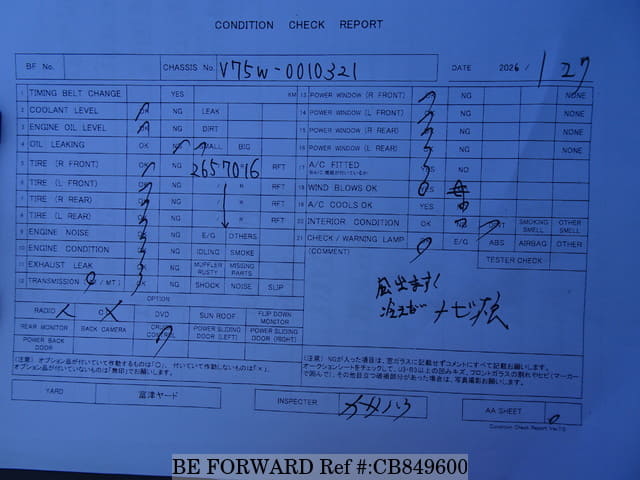 CONDITION CHECK REPORT
BF No. CHASSIS No. V75W-0010321 DATE 2026 / 1 27
1 TIMING BELT CHANGE YES KM
2 COOLANT LEVEL OK NG LEAK
3 ENGINE OIL LEVEL OK NG DIRT
4 OIL LEAKING OK NG SMALL BIG
5 TIRE (R FRONT) OK NG 265 70 16 RFT
6 TIRE (L FRONT) OK NG / R RFT
7 TIRE (R REAR) OK NG / R RFT
8 TIRE (L REAR) OK NG / R RFT
9 ENGINE NOISE OK NG E/G OTHERS
10 ENGINE CONDITION OK NG IDLING SMOKE
11 EXHAUST LEAK OK NG MUFFLER RUSTY MISSING PARTS
12 TRANSMISSION ( / MT) OK NG SHOCK NOISE SLIP
OPTION
RADIO DVD SUN ROOF FLIP DOWN MONITOR
REAR MONITOR BACK CAMERA CRUISE CONTROL POWER SLIDING DOOR (LEFT) POWER SLIDING DOOR (RIGHT)
POWER BACK DOOR
(注意) オプション品が付いていて作動するものは「○」、付いていて作動しないものは「×」、
オプション品が付いていないものは「無印」でお願いします。
13 POWER WINDOW (R FRONT) OK NG NONE
14 POWER WINDOW (L FRONT) OK NG NONE
15 POWER WINDOW (R REAR) OK NG NONE
16 POWER WINDOW (L REAR) OK NG NONE
17 A/C FITTED YES NO
18 WIND BLOWS OK YES
19 A/C COOLS OK YES
20 INTERIOR CONDITION OK NG DIRT SMOKING SMELL OTHER SMELL
21 CHECK / WARNING LAMP E/G ABS AIRBAG OTHER
(COMMENT) TESTER CHECK
風出ますく
(注意) NGが入った項目は、窓ガラスに記載せずコメントにすべて記載お願いします。
YARD 富津ヤード INSPECTER AA SHEET
Condition Check Report Ver.7.0
BE FORWARD Ref #:CB849600